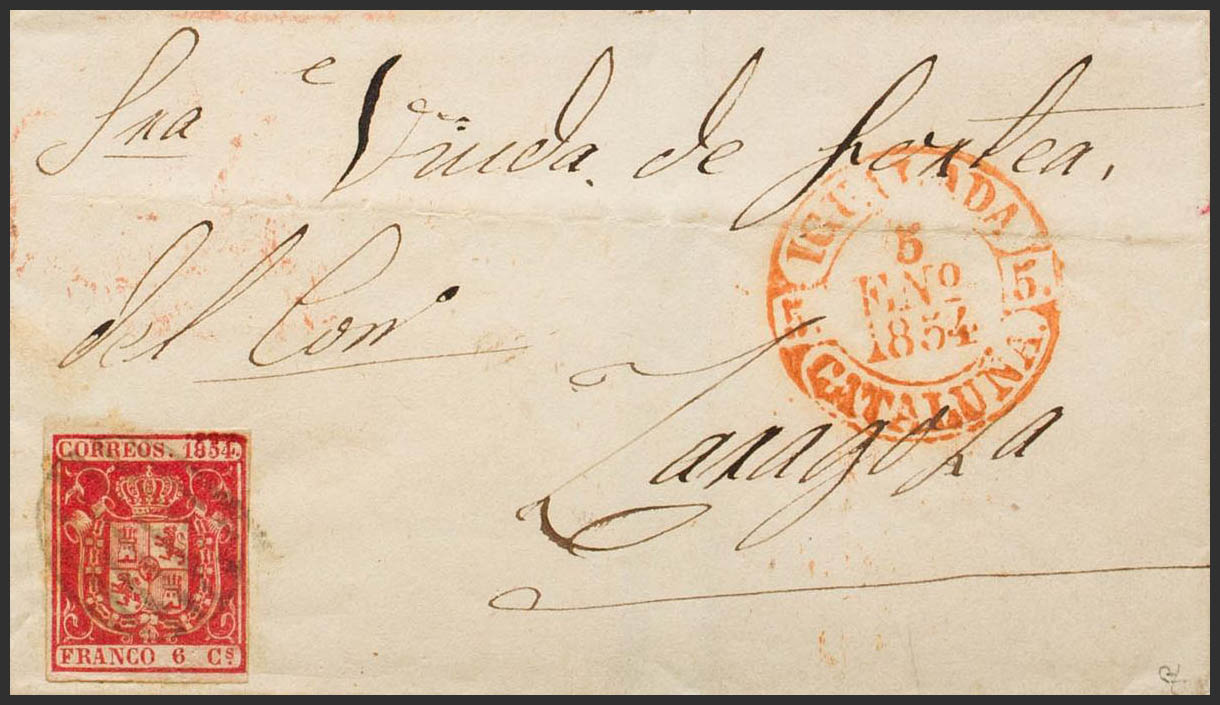 Sra Viuda de
del Con
Zaragoza
IGUALADA
5
ENº
1854
5. 5.
CATALUÑA.
CORREOS. 1854.
FRANCO 6 Cs.